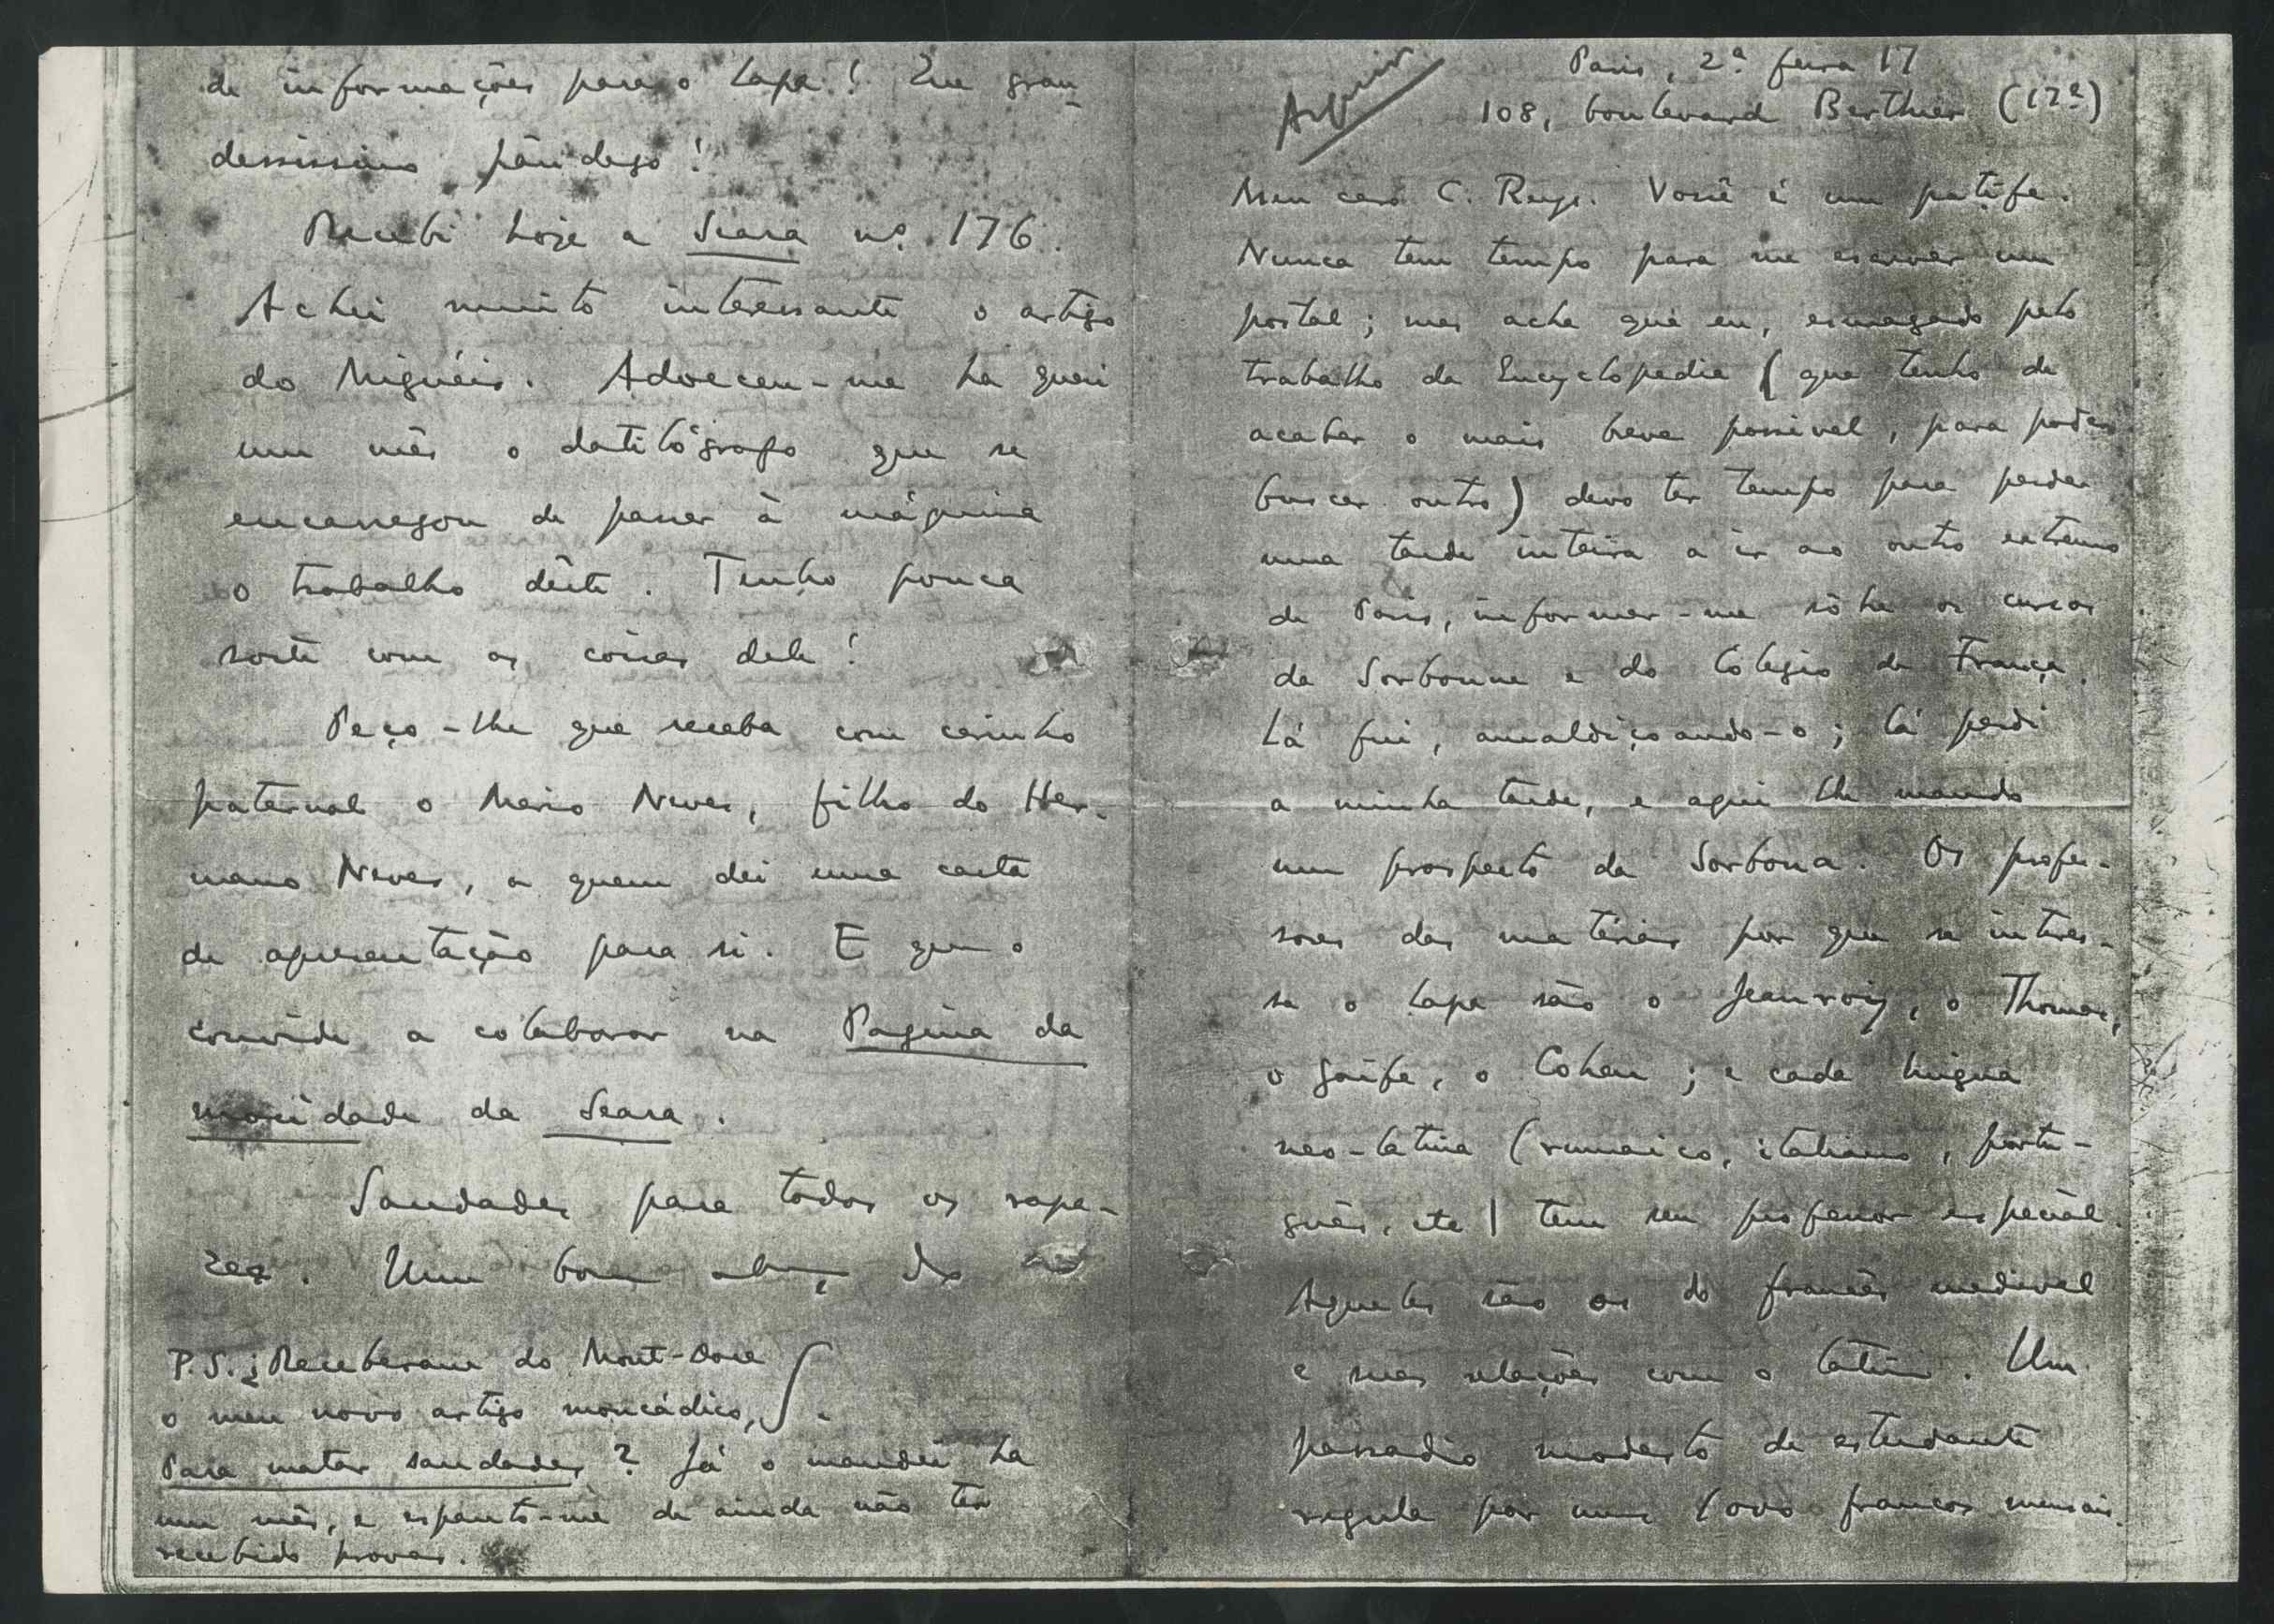 Paris, 2ª feira 17
Arquivar
108, boulevard Berthier (17e)
Meu caro C. Reys. Você é um patife.
Nunca tem tempo para me escrever um
postal; mas acha que eu, esmagado pelo
trabalho da Encyclopedia (que tenho de
acabar o mais breve possivel, para poder
buscar outro) devo ter tempo para perder
uma tarde inteira a ir ao outro extremo
de Paris, informar-me sôbre os cursos
da Sorbonne e do Colegio de França.
Lá fui, amaldiçoando-o; lá perdi
a minha tarde, e aqui lhe mando
um prospecto da Sorbona. Os profes-
sores das matérias por que se interes-
sa o Lapa são o Jeanroy, o Thomas,
o Goufe, o Cohen; e cada lingua
neo-latina (rumaico, italiano, portu-
guês, etc) tem seu professor especial.
Aqueles são os do francês medieval
e suas relações com o latim. Um
passadio modesto de estudante
regula por uns 1000 francos mensais.
de informações para o Lapa! Eu gran-
dessissimo pândego!
Recebi hoje a Seara nº 176.
Achei muito interessante o artigo
do Miguéis. Adoeceu-me ha quasi
um mês o datilógrafo que se
encarregou de passar à máquina
o trabalho dêste. Tenho pouca
sorte com as coisas dele!
Peço-lhe que receba com carinho
paternal o Mario Neves, filho do Her-
mano Neves, a quem dei uma carta
de apresentação para si. E que o
convide a colaborar na Pagina da
mocidade da Seara.
Saudades para todos os rapa-
zes. Um bom abraço do
P.S. ¿Receberam do Mont-Dore
o meu novo artigo moncádico,
Para matar saudades? Já o mandei ha
um mês, e espanto-me de ainda não ter
recebido provas.